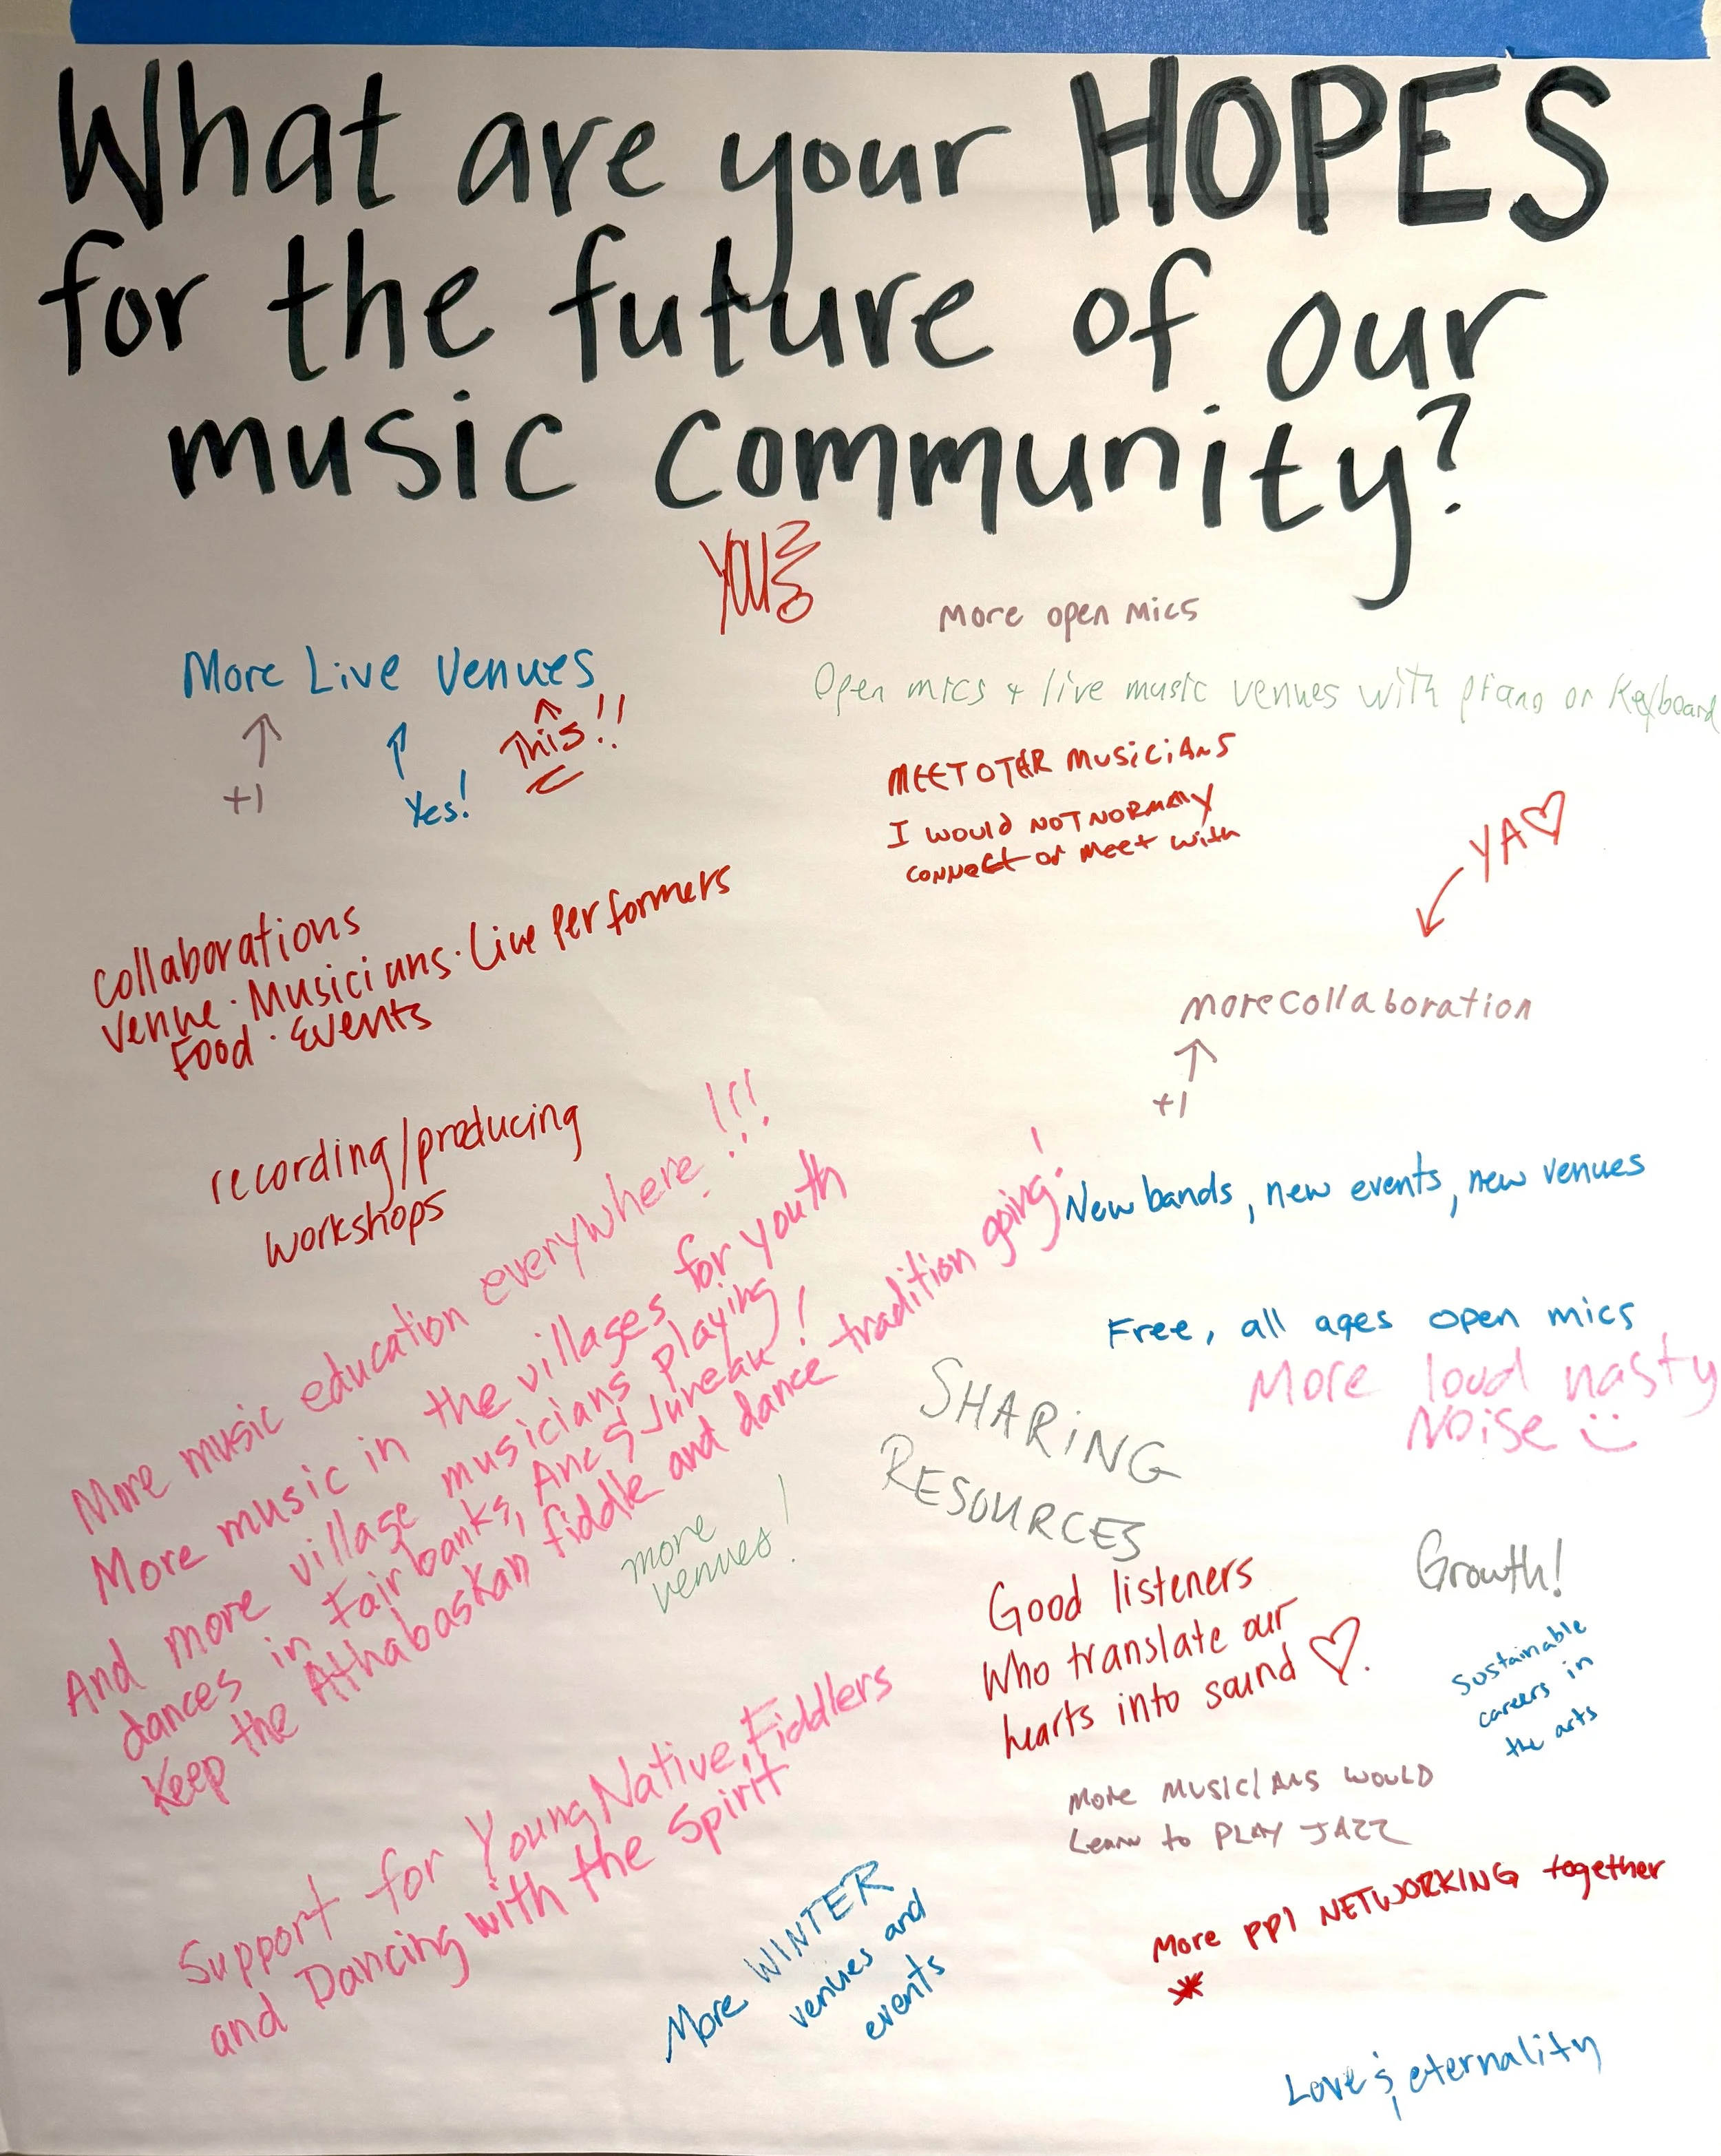 What are your HOPES
for the future of our
music community?
YOU
More open mics
More Live Venues
+1
Yes!
This!!
Open mics + live music venues with piano or Keyboard
MEET OTER MUSICIANS
I would NOT NORMALLY
CONNECT or MEET with
YA♡
collaborations
Venue · Musicians · Live Performers
Food · Events
more collaboration
+1
recording/producing
workshops
New bands, new events, new venues
Free, all ages open mics
More loud nasty
Noise :)
More music education everywhere!!!
More music in the villages for youth
And more village musicians playing
dances in Fairbanks, Anc & Juneau!
Keep the Athabaskan fiddle and dance tradition going!
SHARING
RESOURCES
more
venues!
Growth!
Good listeners
who translate our
hearts into sound ♡.
Sustainable
careers in
the arts
Support for Young Native Fiddlers
and Dancing with the Spirit
More MUSICIANS WOULD
Learn to PLAY JAZZ
More WINTER
venues and
events
More ppl NETWORKING together
Love &, eternality